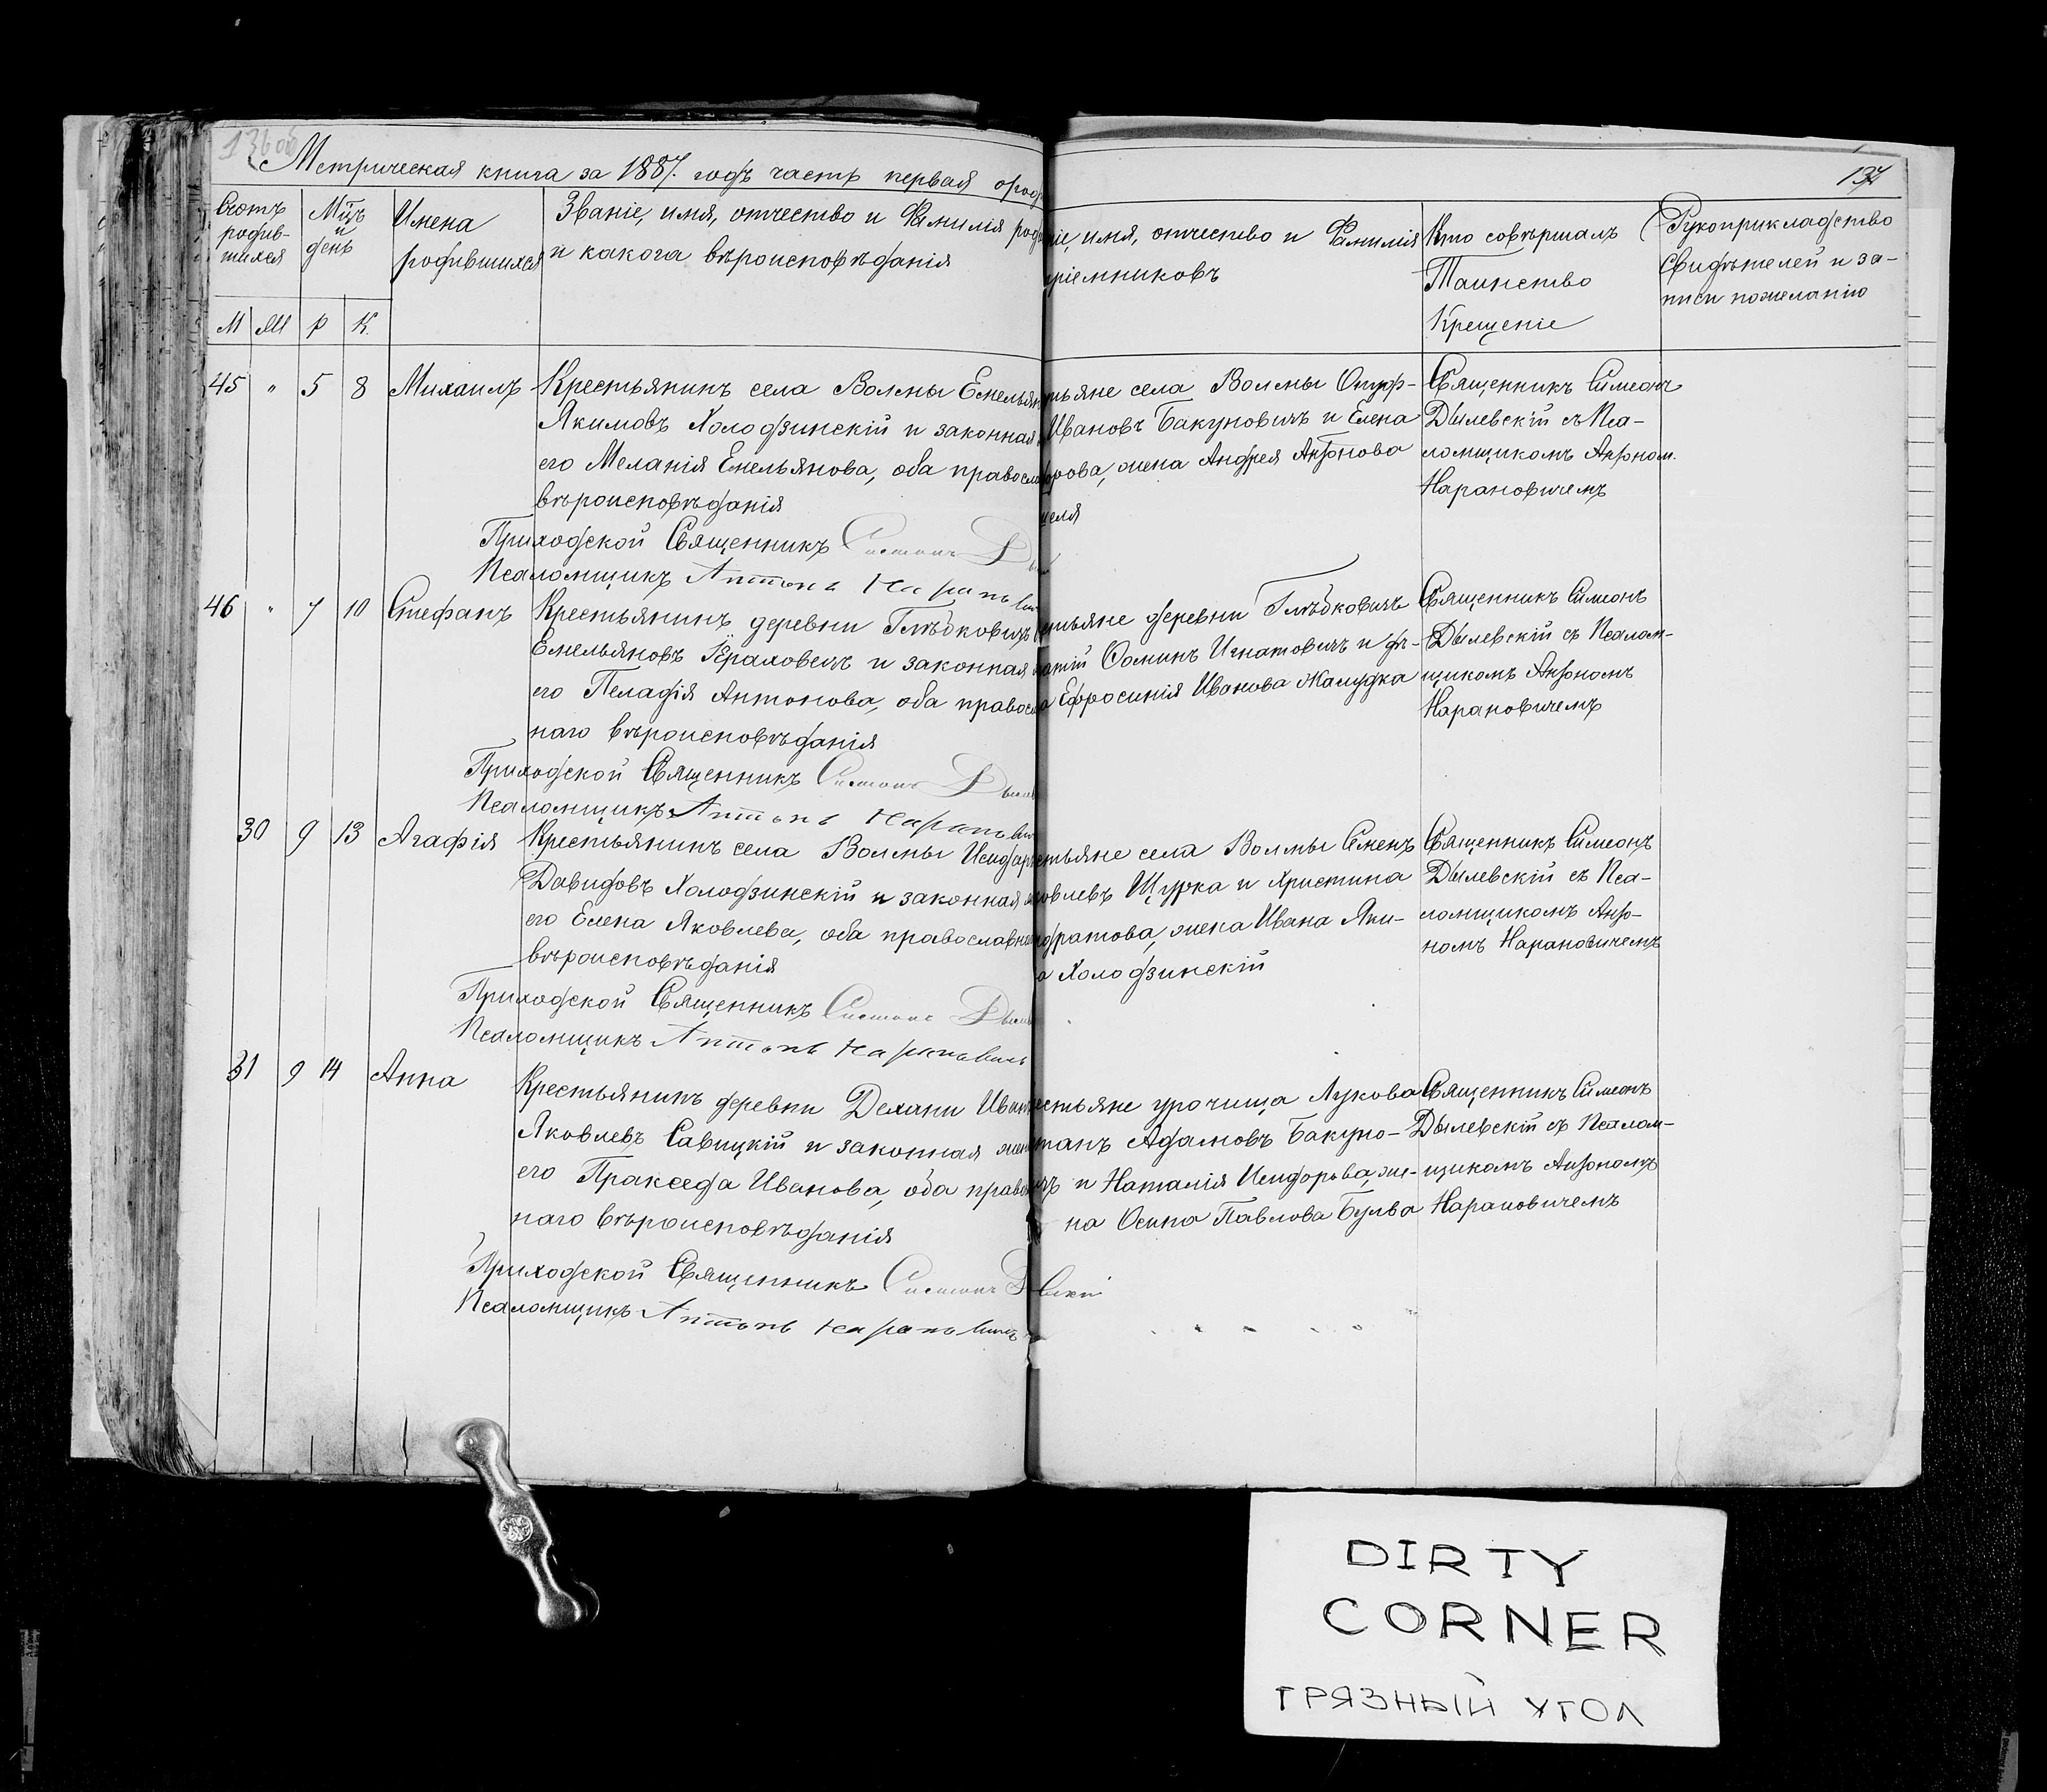 136об
Метрическая книга за 1887. годъ часть первая о род
137
Счотъ родив- шихся
Мцъ и день
Имена родившихся
Званіе, имя, отчество и Фамилія род
и какога вѣроисповѣданія
іе, имя, отчество и Фамилія
пріемниковъ
Кто совѣршалъ
Таинство
Крещеніе
Рукоприкладство
Свидѣтелей и за-
писи пожеланію
М Ж Р К.
45 " 5 8 Михаилъ
Крестьянинъ села Волмы Емельян
Якимовъ Холодзинскій и законная
его Меланія Емельянова, оба правосла
вѣроисповѣданія
Приходской Священникъ Симеонъ
Псаломщикъ Антонъ Наранович
тьяне села Волмы Онуф-
Ивановъ Бакуновичъ и Елена
орова, жена Андрея Антонова
целя
Священникъ Симеонъ
Дылевскій съ Пса-
ломщикомъ Антоном.
Нарановичемъ
46 " 7 10 Стефанъ
Крестьянинъ деревни Глѣбковичъ
Емельяновъ Юраховецъ и законная
его Пелагія Антонова, оба правосл
наго вѣроисповѣданія
Приходской Священникъ Симеонъ Дылев
Псаломщикъ Антонъ Наранович
стьяне деревни Глѣбковичъ
натій Ѳоминъ Игнатовичъ и дѣ-
а Ефросинія Иванова Жалудка
Священникъ Симеонъ
Дылевскій съ Псалом-
щикомъ Антономъ
Нарановичемъ
30 9 13 Агафія
Крестьянинъ села Волмы Исидоръ
Давидовъ Холодзинскій и законная ж
его Елена Яковлева, оба православн
вѣроисповѣданія
Приходской Священникъ Симеонъ Дылев
Псаломщикъ Антонъ Нарановичъ
стьяне села Волмы Семенъ
ковлевъ Щурка и Христина
дратова, жена Ивана Яки-
а Холодзинскій
Священникъ Симеонъ
Дылевскій съ Пса-
ломщикомъ Анто-
номъ Нарановичемъ
31 9 14 Анна
Крестьянинъ деревни Дехани Иван
Яковлевъ Савицкій и законная жен
его Пракседа Иванова, оба право
наго вѣроисповѣданія
Приходской Священникъ Симеонъ Д вскій
Псаломщикъ Антонъ Нарановичъ
естьяне урочища Лукова
танъ Адамовъ Бакуно-
чъ и Наталія Исидорова, же-
на Осипа Павлова Бульва
Священникъ Симеонъ
Дылевскій съ Псалом-
щикомъ Антономъ
Нарановичемъ
DIRTY
CORNER
ГРЯЗНЫЙ УГОЛ